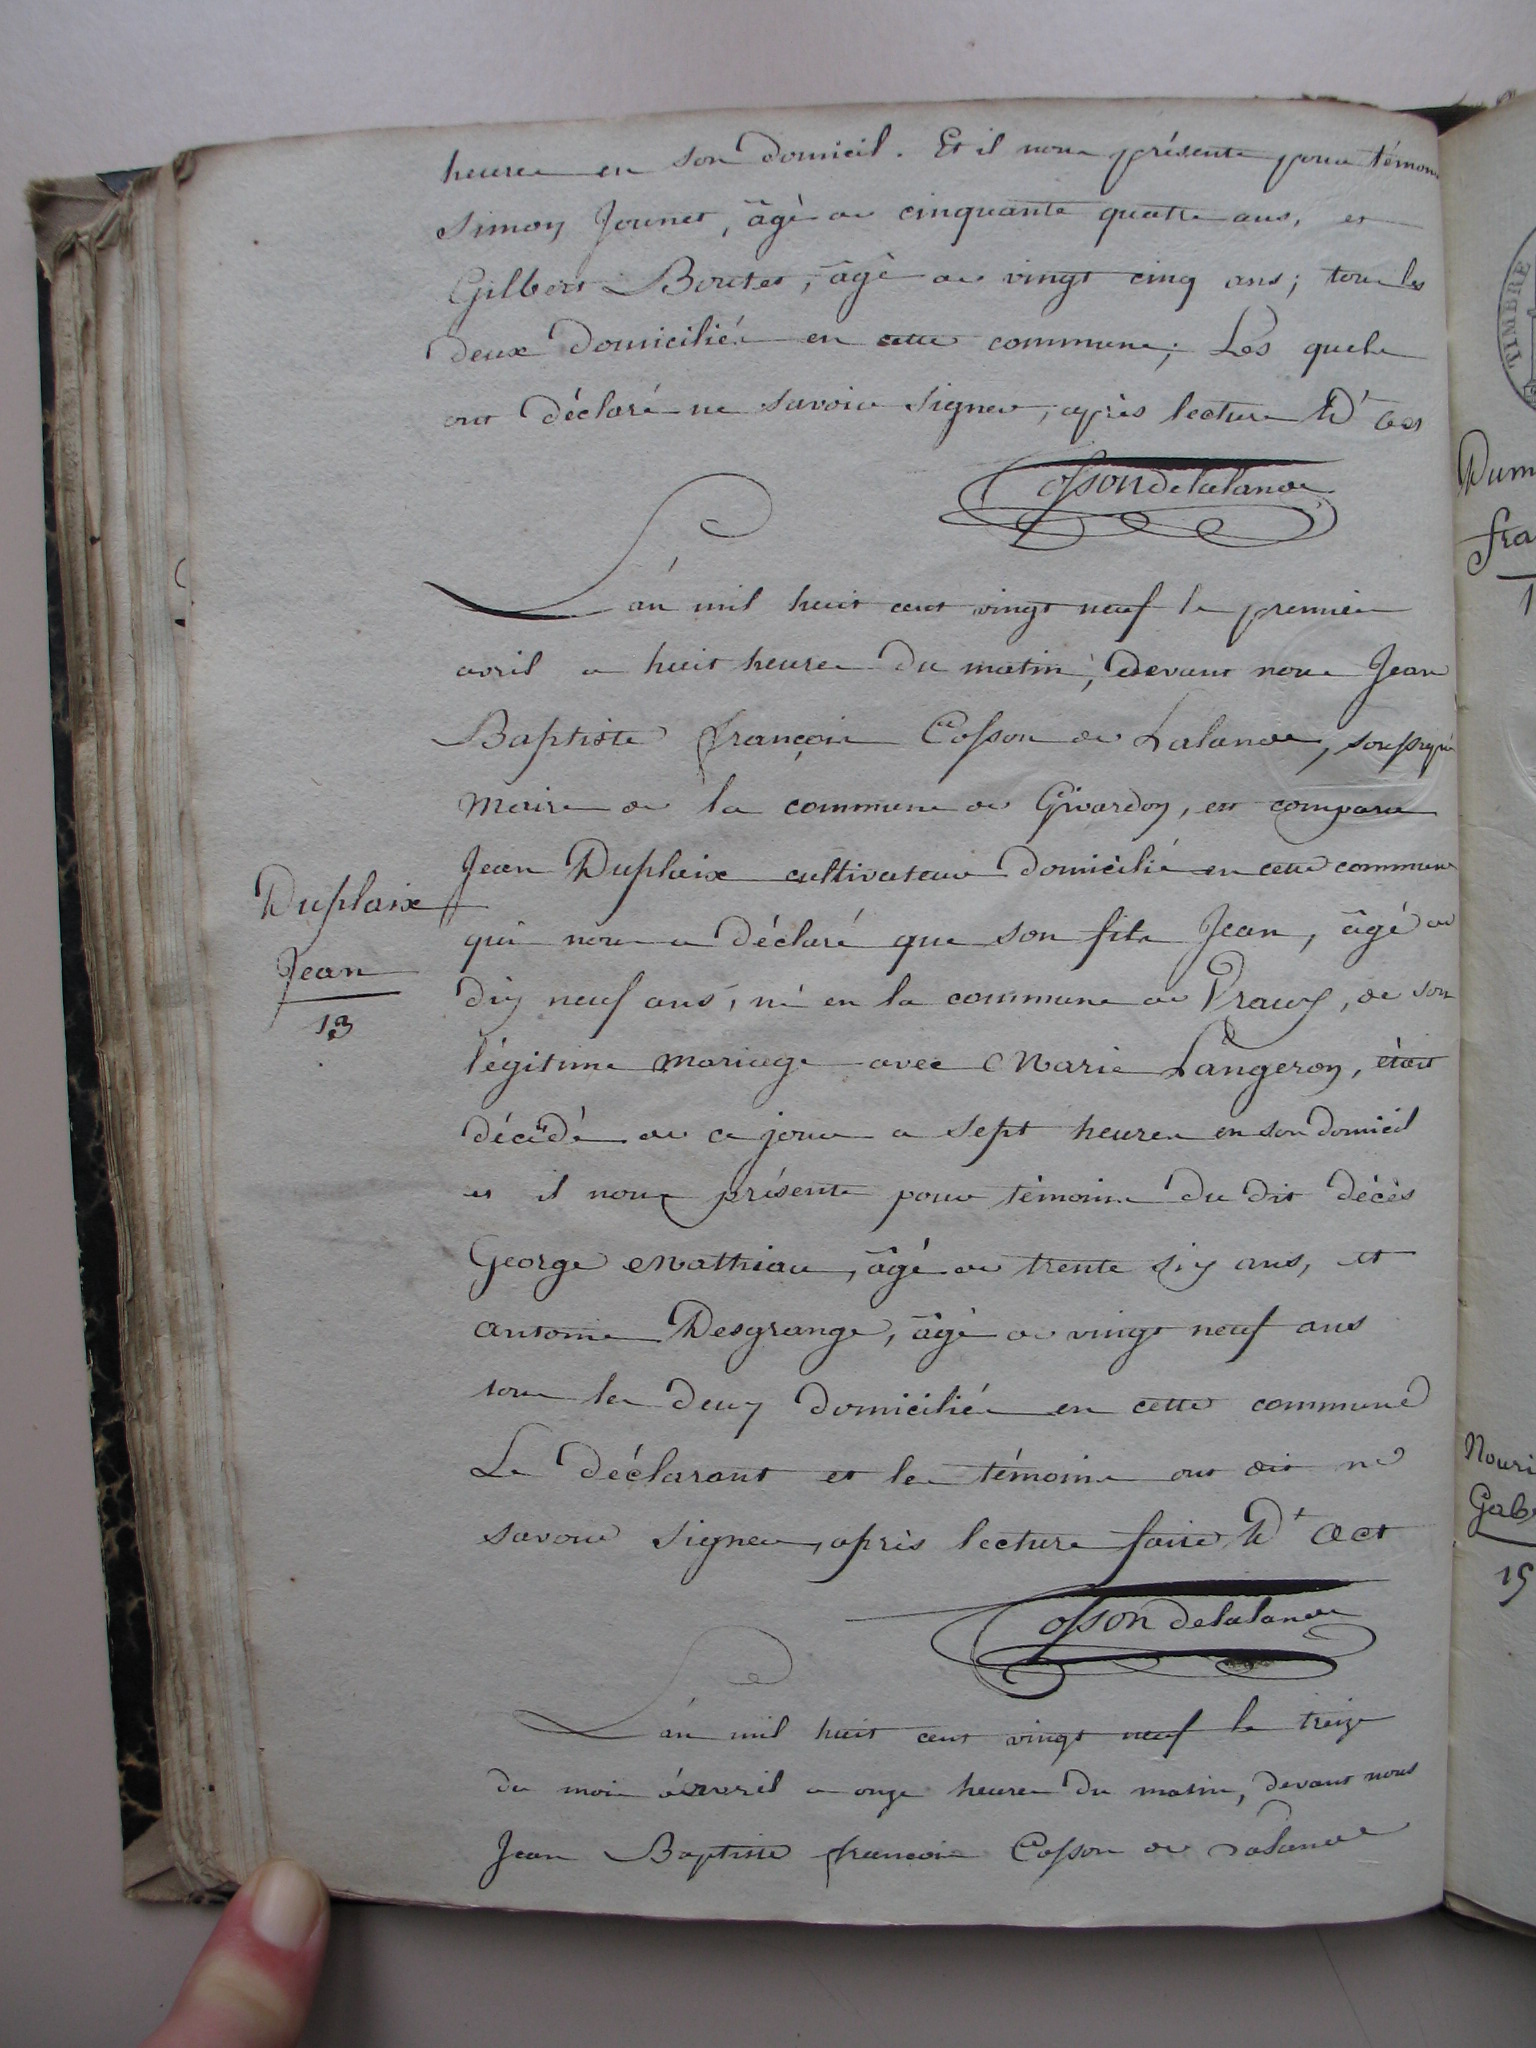 heures en son domicil. Et il nous présente pour témoins
Simon Jounet, âgé de cinquante quatre ans, et
Gilbert Boutet, âgé de vingt cinq ans; tous les
deux domiciliés en cette commune; Les quels
ont déclaré ne savoir signer, après lecture D' act
Cosson delalande
L'an mil huit cent vingt neuf le premier
avril a huit heures du matin, devant nous Jean
Baptiste François Cosson de Lalande, soussigné
Maire de la commune de Givardon, est comparu
Jean Duplaix cultivateur domicilié en cette commune
Duplaix
Jean
13
qui nous a déclaré que son fils Jean, âgé de
dix neuf ans, né en la commune de Vraux, de son
légitime mariage avec Marie Langeron, était
décédé de ce jour a sept heures en son domicil
et il nous présente pour témoins du dit décès
George Mathiau, âgé de trente six ans, et
antoine Desgrange, âgé de vingt neuf ans
tous les deux domiciliés en cette commune
Le déclarant et les témoins ont dit ne
savoir signer, après lecture faite D' act
Cosson delalande
L'an mil huit cent vingt neuf le treize
du mois d'avril a onze heures du matin, devant nous
Jean Baptiste francois Cosson de Lalande
TIMBRE
Dum
fra
1
Nouri
Gab
15